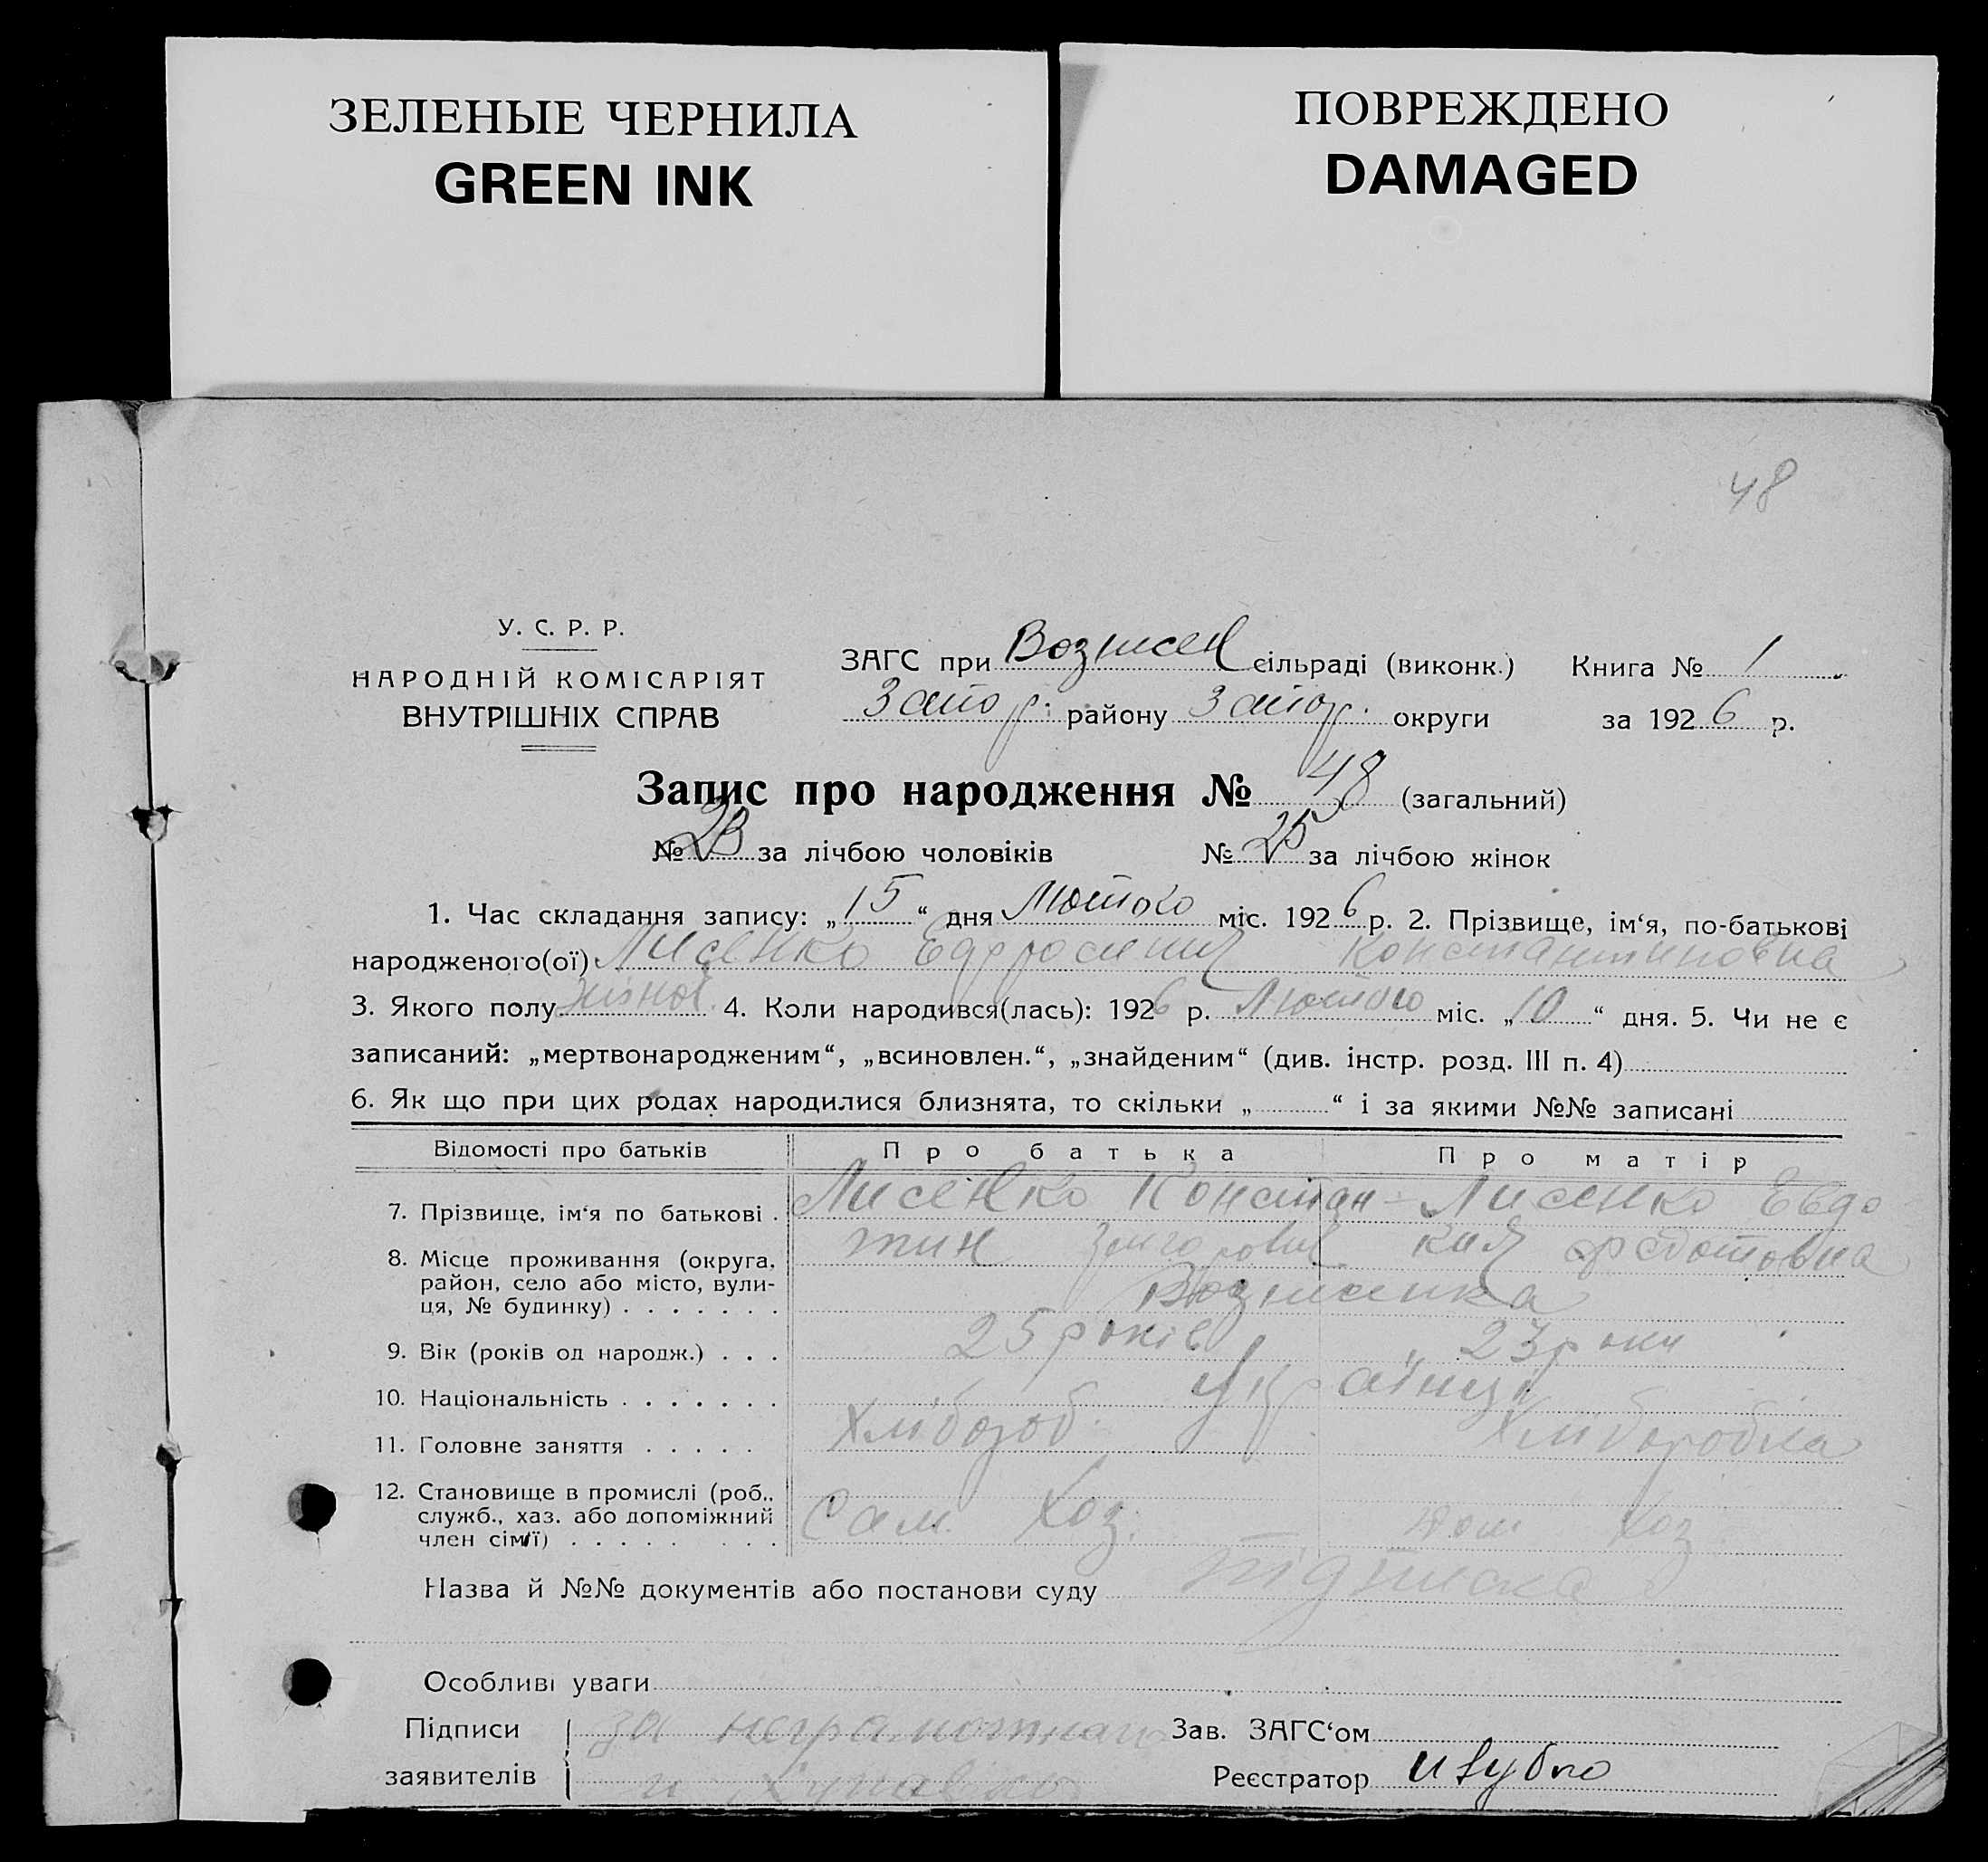 ЗЕЛЕНЫЕ ЧЕРНИЛА
GREEN INK
ПОВРЕЖДЕНО
DAMAGED
48
У. С. Р. Р.
НАРОДНІЙ КОМІСАРІЯТ
ВНУТРІШНІХ СПРАВ
ЗАГС при Вознесен сільраді (виконк.) Книга № 1
Запор. району Запор. округи за 1926 р.
Запис про народження № 48 (загальний)
№ 23 за лічбою чоловіків № 25 за лічбою жінок
1. Час складання запису: „15“ дня Лютого міс. 1926 р. 2. Прізвище, ім‘я, по-батькові
народженого(ої) Лисенко Ефросиния Константиновна
3. Якого полу жіноч. 4. Коли народився(лась): 1926 р. Лютого міс. „10“ дня. 5. Чи не є
записаний: „мертвонародженим“, „всиновлен.“, „знайденим“ (див. інстр. розд. III п. 4)
6. Як що при цих родах народилися близнята, то скільки „ “ і за якими №№ записані
Відомості про батьків Про батька Про матір
7. Прізвище, ім‘я по батькові . Лисенко Констан- Лисенко Евдо
тин кия Федотовна
8. Місце проживання (округа,
район, село або місто, вули-
ця, № будинку) . . . . . . . Вознесенка
9. Вік (років од народж.) . . . 25 років 23 роки
10. Національність . . . . . . . Українці
11. Головне заняття . . . . . Хлібороб. Хліборобка
12. Становище в промислі (роб.,
служб., хаз. або допоміжний
член сім‘ї) . . . . . . . . Сам. Хоз. Дом Хоз.
Назва й №№ документів або постанови суду підписка
Особливі уваги
Підписи за неграмотного Зав. ЗАГС‘ом
заявителів Реєстратор